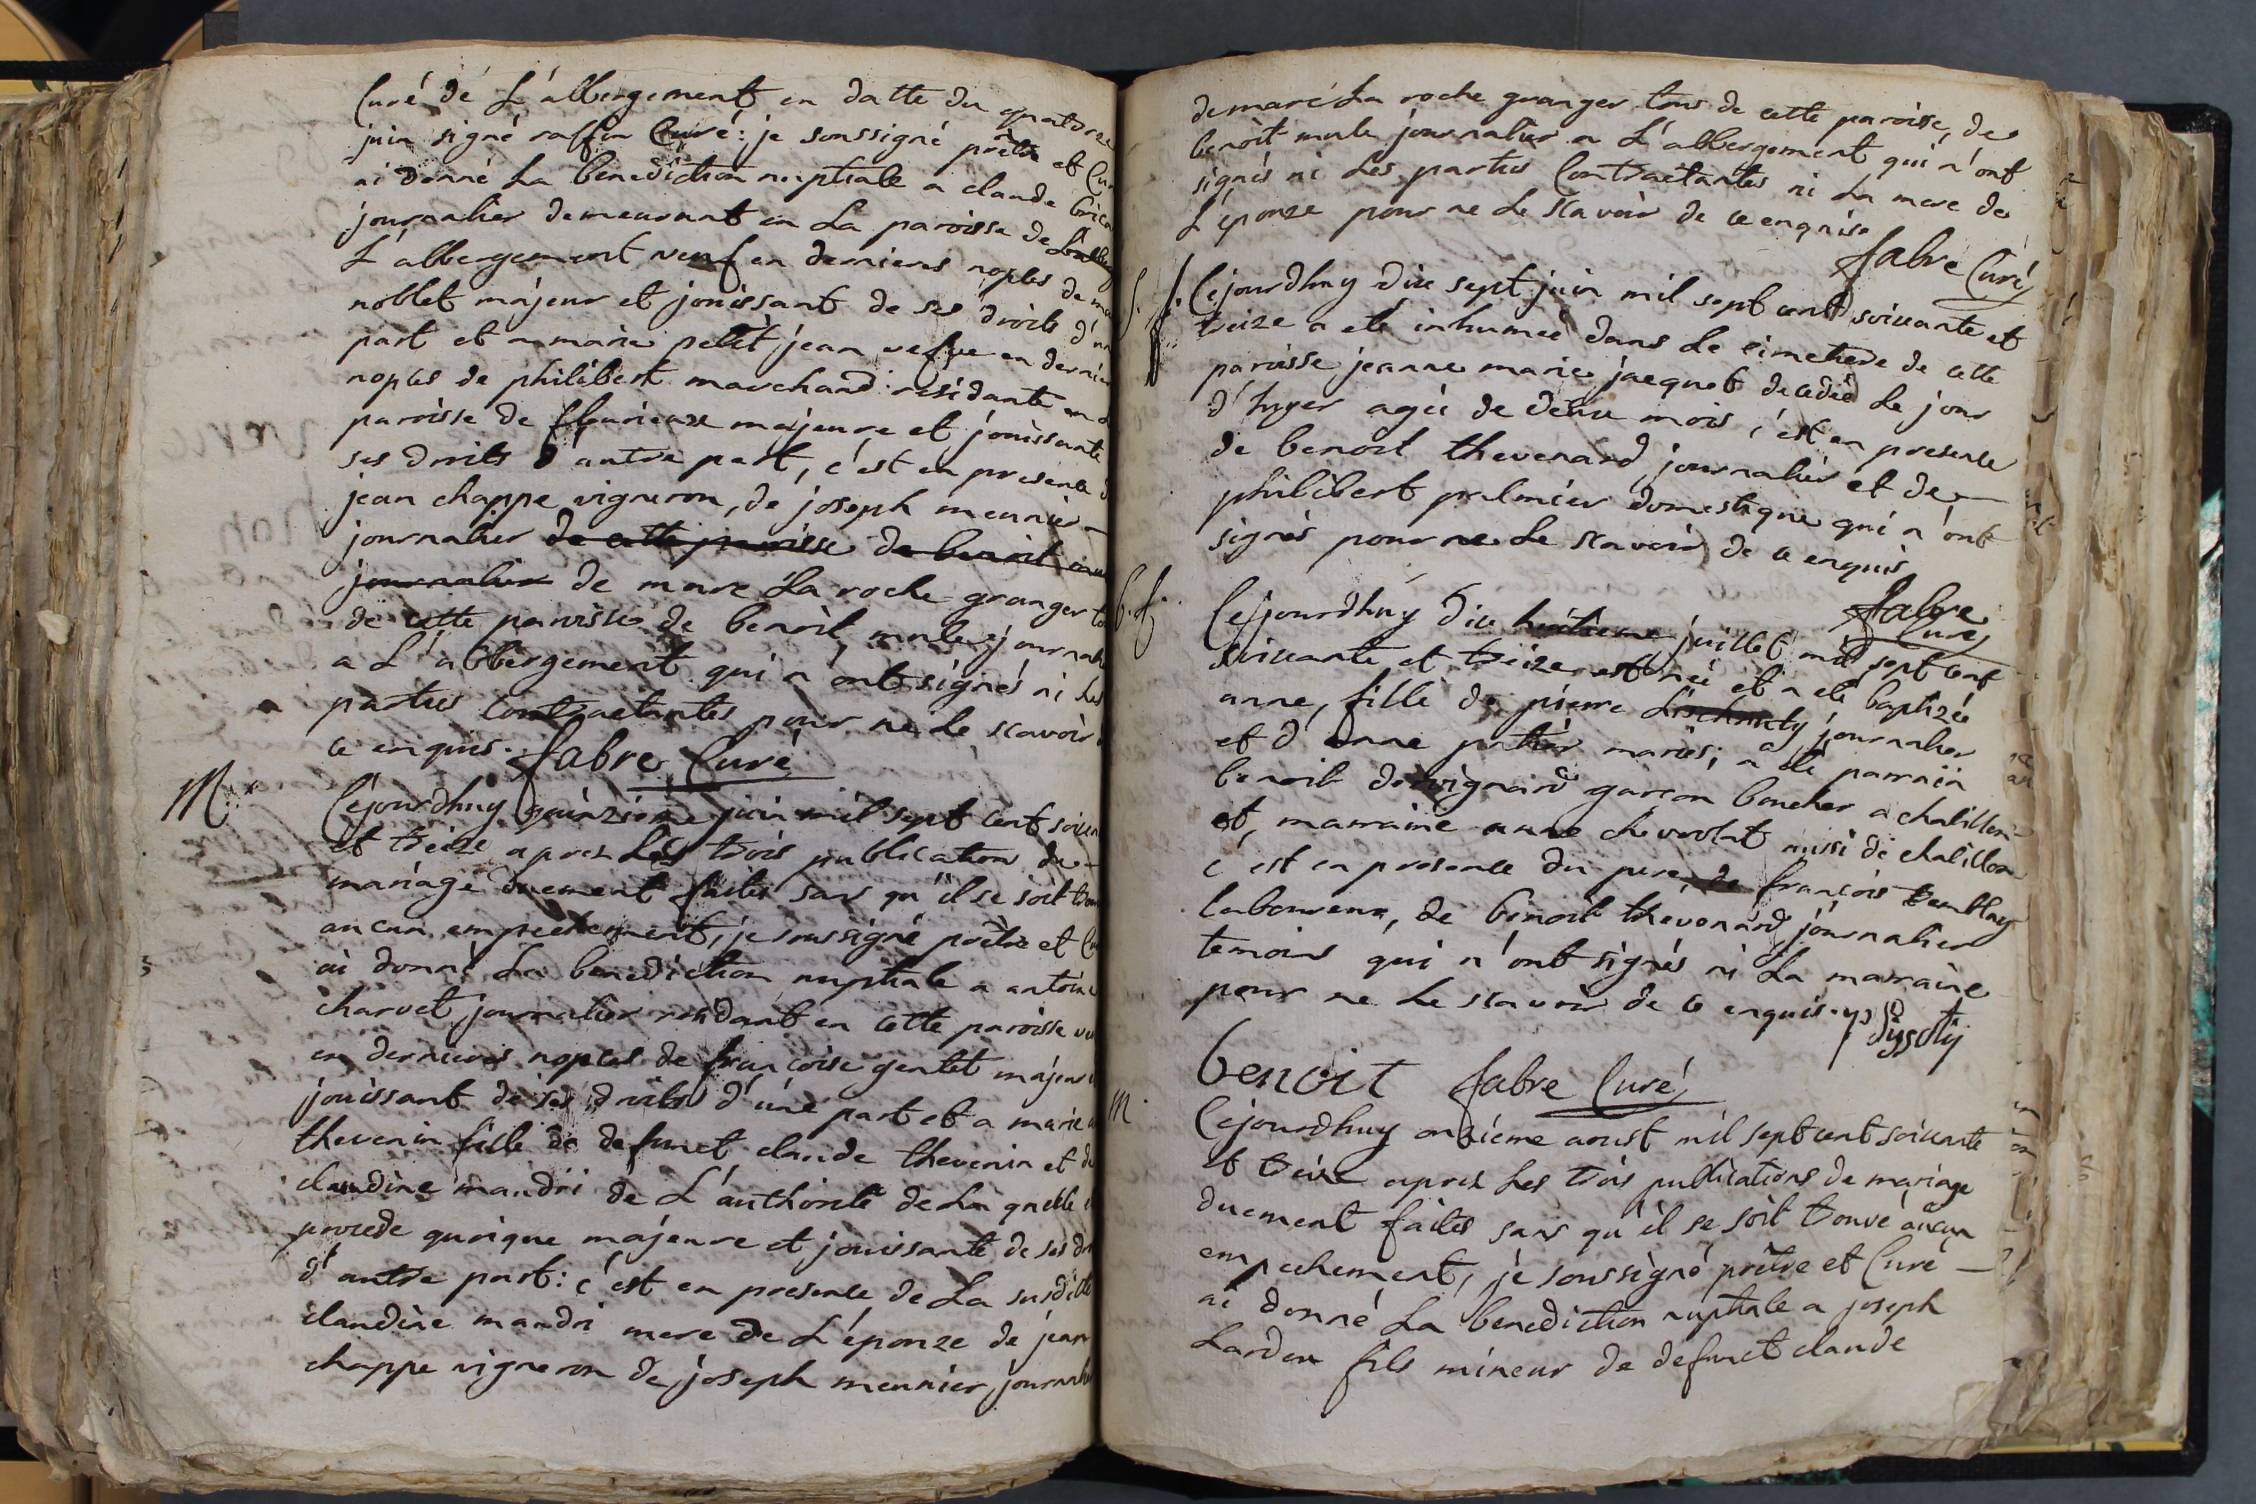 Curé de L'albergement en datte du quatorze
juin signé raffin Curé: je soussigné prêtre et Cur
ai donné La benediction nuptiale a claude
journalier demeurant en La paroisse de
L'albergement veuf en dernieres noples de
noblet majeur et jouissant de ses droits d'un
part et a marie petit jean vefve en dernier
noples de philibert marchand residante en
paroisse de fleurieux majeure et jouissante
ses droits d'autre part, c'est en presence d
jean chappe vigneron, de joseph meunier
journalier de cette paroisse de benoit
journalier de marc La roche granger to
de cette paroisse de benoit mule journali
a L'albergement qui n'ont signés ni Les
parties contractantes pour ne Le scavoir d
ce enquis. fabre Curé
M. Cejourdhuy quinzieme juin mil sept cent soixan
et treize apres Les trois publication de
mariage duement faites sans qu'il se soit trou
aucun empechement, je soussigné prêtre et Cu
ai donné La benediction nuptiale a antoine
charvet journalier residant en cette paroisse
en dernieres noples de françoise gentet majeur
jouissant de ses droits d'une part et a marie
thevenin fille de defunct claude thevenin et d
claudine maudri de L'authorité de La quelle
procede quoique majeure et jouissante de ses dr
d'autre part: c'est en presence de La susditte
claudine maudri mere de L'épouze de jean
chappe vigneron de joseph meunier journali
de marc La roche granger tous de cette paroisse, de
benoit mule journalier a L'albergement qui n'ont
signés ni Les parties Contractantes ni La mere de
L'épouze pour ne Le scavoir de ce enquise
fabre Curé
Cejourdhuy dix sept juin mil sept cent soixante et
treize a eté inhumée dans Le cimetiere de cette
paroisse jeanne marie jacquet decedée Le jour
d'hyer agée de deux mois, c'est en presence
de benoit thevenard journalier et de
philibert palmier domestique qui n'ont
signés pour ne Le scavoir de ce enquis
fabre
Curé
b.f. Cejourdhuy dix huitieme juillet mil sept cent
soixante et treize est née et a eté baptizée
anne, fille de pierre journalier
et d'anne mariés; a eté parrain
benoit garçon boucher a chatillon
et marraine anne chevrolat aussi de chatillon
c'est en presence du pere, de françois tremblay
laboureur, de benoit thevenard journalier
temoins qui n'ont signés ni La marraine
pour ne Le scavoir de ce enquis.
benoit fabre Curé
m. Cejourdhuy onzieme aoust mil sept cent soixante
et treize apres Les trois publications de mariage
duement faites sans qu'il se soit trouvé aucun
empechement, je soussigné prêtre et Curé
ai donné La benediction nuptiale a joseph
Lardon fils mineur de defunct claude